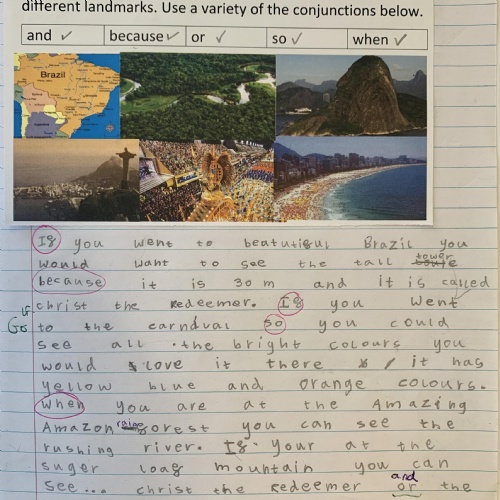 different landmarks. Use a variety of the conjunctions below.
and ✓ because ✓ or ✓ so ✓ when ✓
Brazil
If you went to beatutiful Brazil you
would want to see the tall tower
because it is 30 m and it is called
christ the redeemer. If you went
to the carndval so you could
see all the bright colours you
would love it there it has
yellow blue and orange colours.
When you are at the Amazing
Amazon forest you can see the
rushing river. If your at the
suger loaf mountain you can
and
see... christ the redeemer or the